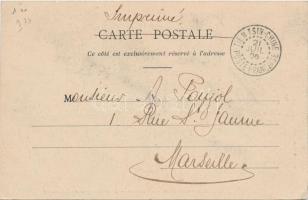 Imprimé
CARTE POSTALE
Ce côté est exclusivement réservé à l'adresse
TIEN-TSIN-CHINE
Monsieur A. Poujol
1 Rue St Jaume
Marseille